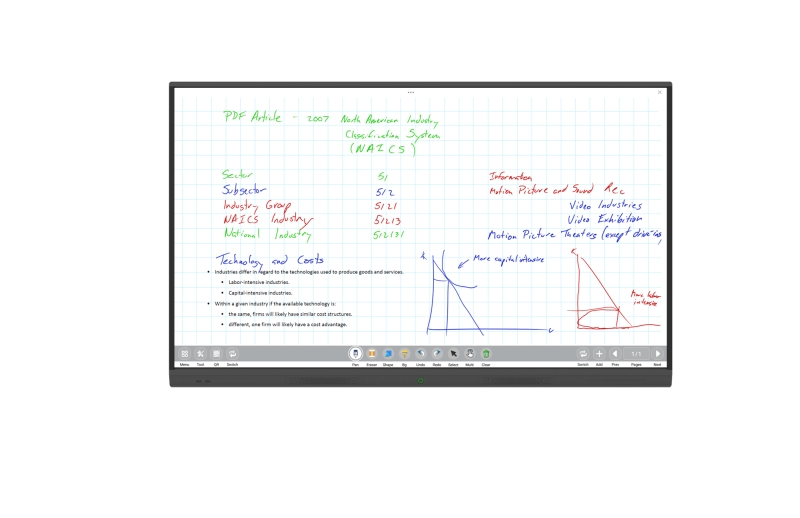 PDF Article - 2007 North American Industry
Classification System
(NAICS)
Sector 51 Information
Subsector 512 Motion Picture and Sound Rec
Industry Group 5121 Video Industries
NAICS Industry 51213 Video Exhibition
National Industry 512131 Motion Picture Theaters (except drive-ins)
Technology and Costs
• Industries differ in regard to the technologies used to produce goods and services.
• Labor-intensive industries.
• Capital-intensive industries.
• Within a given industry if the available technology is:
• the same, firms will likely have similar cost structures.
• different, one firm will likely have a cost advantage.
K More capital intensive
K
More labor
intensive
Menu Tool Off Switch Pen Eraser Shape Undo Redo Select Multi Clear Switch Add Prev 1/1 Pages Next